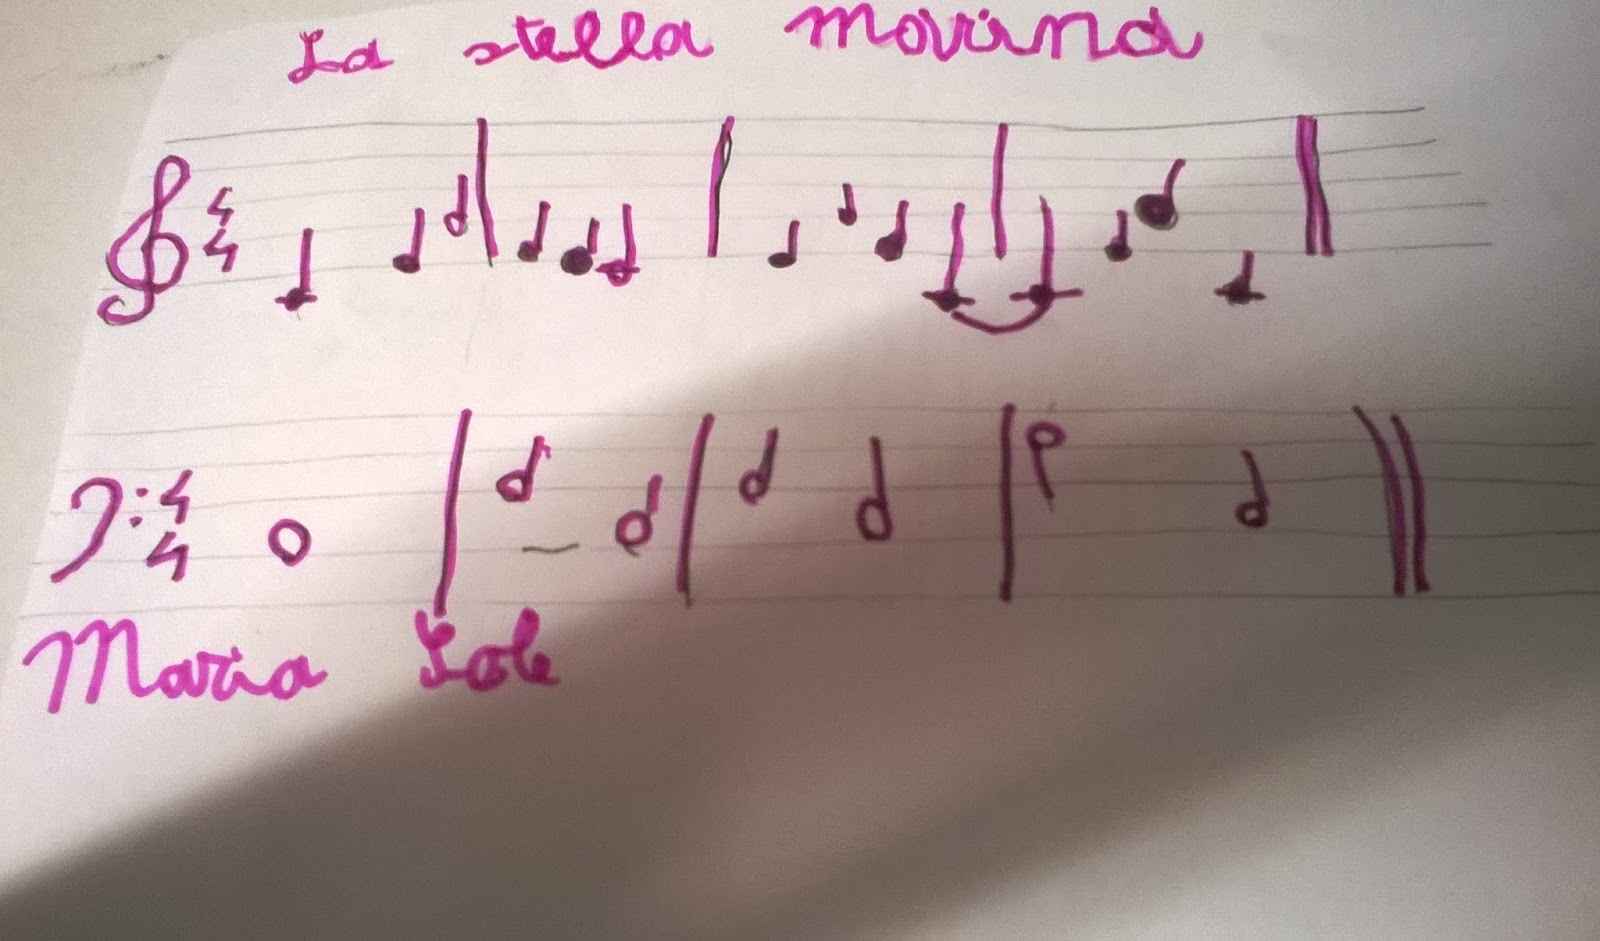 La stella marina
4 4
4 4
Maria Sole